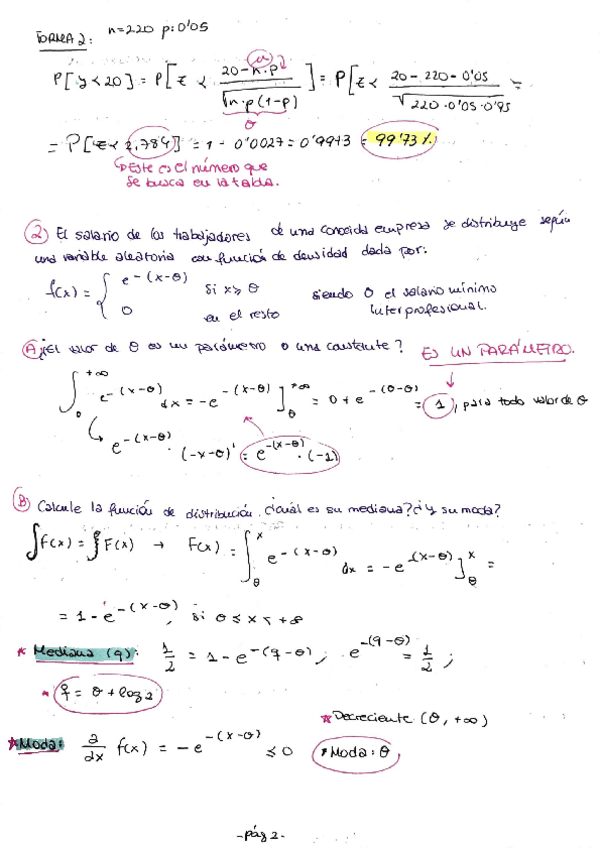 FORMA 2: n=220 p=0'05
P[y<20] = P[z < (20-n·p)/√(n·p(1-p))] = P[z < (20-220-0'05)/√(220·0'05·0'95)] =
u
σ
= P[z < 2,784] = 1 - 0'0027 = 0'9973 = 99'73%
Este es el número que
se busca en la tabla.
2) El salario de los trabajadores de una conocida empresa se distribuye según
una variable aleatoria con función de densidad dada por:
f(x) = { e^-(x-θ) si x≥θ siendo θ el salario mínimo
0 en el resto interprofesional.
A) ¿El valor de θ es un parámetro o una constante? ES UN PARÁMETRO.
∫_θ^+∞ e^-(x-θ) dx = -e^-(x-θ)]_θ^+∞ = 0+e^-(θ-θ) = 1, para todo valor de θ
e^-(x-θ) · (-x-θ)' = e^-(x-θ) · (-1)
B) Calcule la función de distribución. ¿cuál es su mediana? ¿y su moda?
∫f(x) = F(x) → F(x) = ∫_θ^x e^-(x-θ) dx = -e^-(x-θ)]_θ^x =
= 1-e^-(x-θ), si θ≤x<+∞
* Mediana (q): 1/2 = 1-e^-(q-θ); e^-(q-θ) = 1/2;
q = θ + log 2
* Decreciente (θ, +∞)
* Moda: ∂/∂x f(x) = -e^-(x-θ) ≤ 0 * Moda: θ
-pág 2-